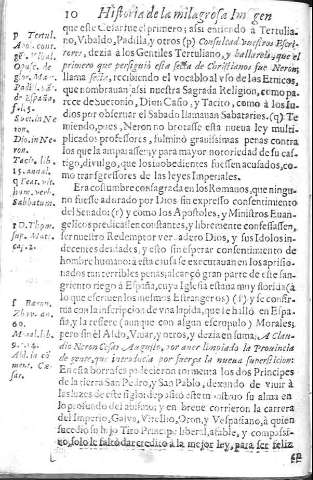 10 Historia de la milagrosa Imagen
que este Cesar fue el primero; assi entiendo a Tertulia-
no, Vibaldo, Padilla, y otros (p) Consultad vuestros Escri-
tores, dezia a los Gentiles Tertuliano, y hallareis, que el
primero que persiguiò esta secta de Christianos fue Neron;
llama secta, recibiendo el vocablo al vso de los Etnicos,
que nombrauan assi nuestra Sagrada Religion, como pa-
rece de Suetonio, Dion Casio, y Tacito, como à los Iu-
dios por obseruar el Sabado llamauan Sabatarios. (q) Te
miendo, pues, Neron no brotasse esta nueva ley multi-
plicados professores, fulminò grauissimas penas contra
los que la amparassen, y para mayor notoriedad de su cas-
tigo, divulgò, que los inobedientes fuessen acusados, co-
mo transgressores de las leyes Imperiales.
Era costumbre consagrada en los Romanos, que ningu-
no fuesse adorado por Dios sin expresso consentimiento
del Senado: (r) y como los Apostoles, y Ministros Euan-
gelicos predicassen constantes, y libremente confessassen,
ser nuestro Redemptor verdadero Dios, y sus Idolos in-
decentes deidades, y esto sin esperar consentimiento de
hombre humano: à esta causa se executauan en los aprisio-
nados tan terribles penas; alcançò gran parte de este san-
griento riego à España, cuya Iglesia estaua muy florida (à
lo que escriuen los mesmos Estrangeros) (s) y se confir-
ma con la inscripcion de vna lapida, que se hallò en Espa-
ña, y la refiere (aunque con algun escrupulo) Morales;
pero sin èl Aldo, Vivar, y otros, y dezia en suma: A Clau-
dio Neron Cesar Augusto, por auer limpiado la Provincia
de gente, que introducia por fuerça la nueua supersticion.
En esta borrasca padecieron tormenta los dos Principes
de la tierra San Pedro, y San Pablo, dexando de viuir à
las luzes de este siglo: depositò este su alma en
lo profundo del abismo; y en breue corrieron la carrera
del Imperio, Galva, Vitelio, Oton, y Vespasiano, à quien
sucedio su hijo Tito Principe liberal, afable, y compasi-
uo, solo le faltò dar credito a la mejor ley, para ser feliz
p Tertul.
q Teat. vit.
hum. verb.
Sabbatum.
r D. Thom.
s Baron.
Moral. lib.
9. c. 14.
Ald. in cõ
ment. Cæ-
sar.